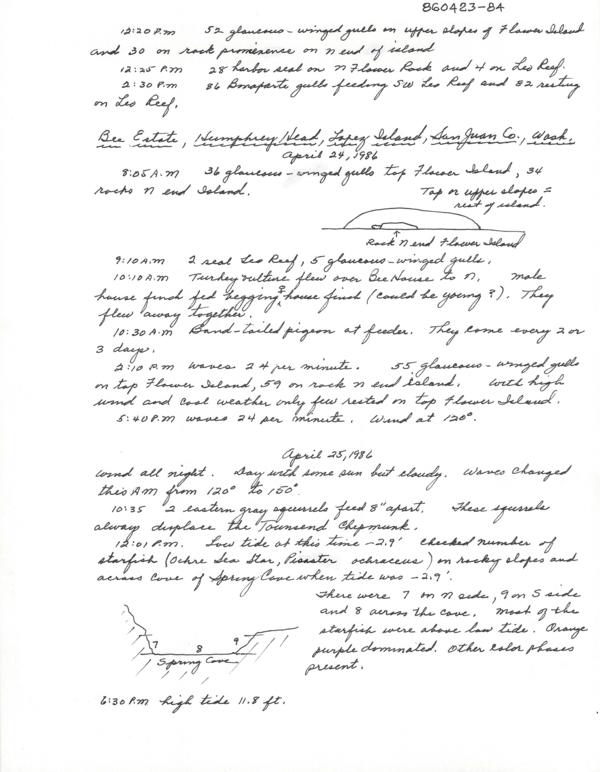 860423-84
12:20 P.M 52 glaucous-winged gulls on upper slopes of Flower Island
and 30 on rock prominence on N end of island
12:25 P.M 28 harbor seal on N Flower Rock and 4 on Leo Reef.
2:30 P.M 86 Bonaparte gulls feeding SW Leo Reef and 82 resting
on Leo Reef.
Bee Estate, Humphrey Head, Lopez Island, San Juan Co., Wash.
April 24, 1986
8:05 A.M 36 glaucous-winged gulls top Flower Island, 34
rocks N end Island.
Top or upper slopes =
rest of island.
Rock N end Flower Island
9:10 A.M 2 seal Leo Reef, 5 glaucous-winged gulls.
10:10 A.M Turkey vulture flew over Bee House to N. male
house finch fed begging ♀ house finch (could be young?). They
flew away together.
10:30 A.M Band-tailed pigeon at feeder. They come every 2 or
3 days.
2:10 P.M waves 24 per minute. 55 glaucous-winged gulls
on top Flower Island, 59 on rock N end island. With high
wind and cool weather only few rested on top Flower Island.
5:40 P.M waves 24 per minute. Wind at 120°.
April 25, 1986
Wind all night. Day with some sun but cloudy. Waves changed
this AM from 120° to 150°.
10:35 2 eastern gray squirrels feed 8" apart. These squrels
always displace the Townsend Chipmunk.
12:01 P.M. Low tide at this time -2.9' checked number of
starfish (Ochre Sea Star, Pisaster ochraceus) on rocky slopes and
across Cove of Spring Cove when tide was -2.9'.
There were 7 on N side, 9 on S side
and 8 across the cove. Most of the
starfish were above low tide. Orange
purple dominated. Other color phases
present.
7 8 9
Spring Cove
6:30 P.M high tide 11.8 ft.